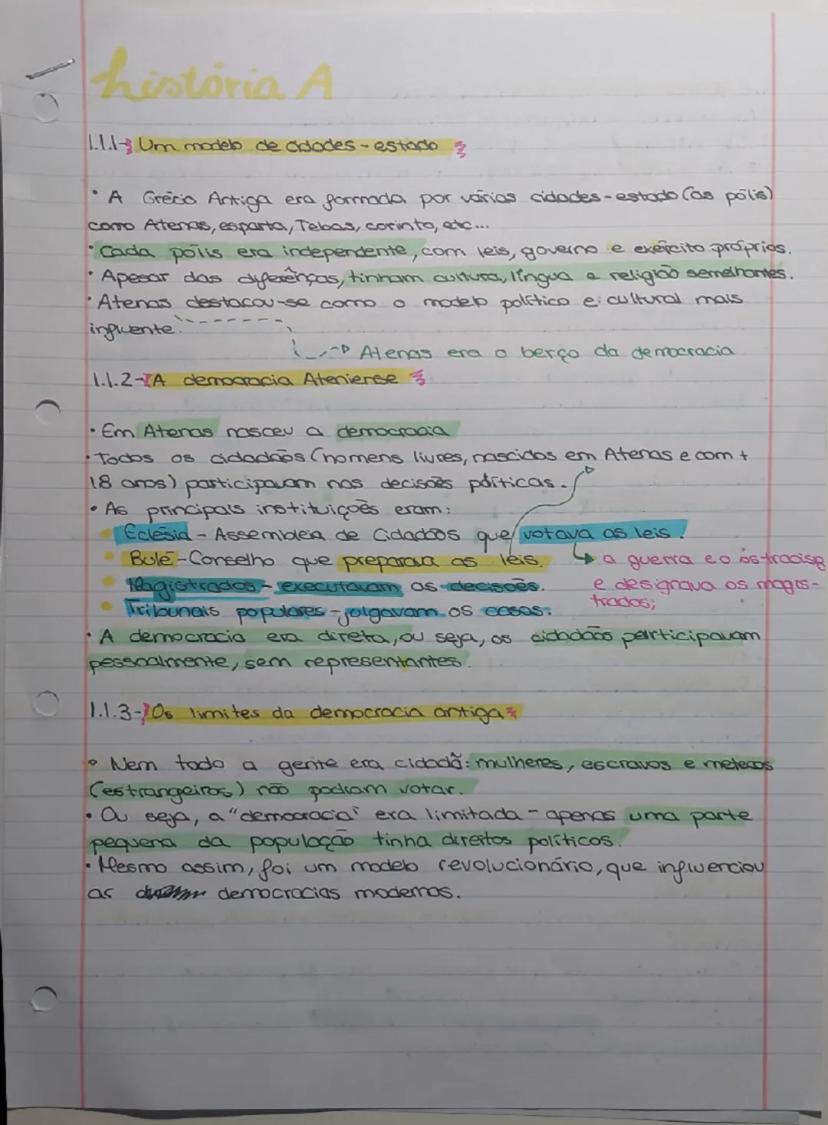 história A
1.1.1- Um modelo de cidades-estado
• A Grécia Antiga era formada por várias cidades-estado (as pólis)
como Atenas, esparta, Tebas, corinto, etc...
• Cada pólis era independente, com leis, governo e exército próprios.
• Apesar das diferenças, tinham cultura, língua e religião semelhantes.
• Atenas destacou-se como o modelo político e cultural mais
influente.
Atenas era o berço da democracia
1.1.2- A democracia Ateniense
• Em Atenas nasceu a democracia
• Todos os cidadãos (homens livres, nascidos em Atenas e com +
18 anos) participavam nas decisões políticas.
• As principais instituições eram:
• Eclésia - Assembleia de Cidadãos que votava as leis.
• Bulé - Conselho que preparava as leis.
a guerra e o ostracismo
• Magistrados - executavam as decisões.
e designava os magis-
trados;
• Tribunais populares - julgavam os casos.
• A democracia era direta, ou seja, os cidadãos participavam
pessoalmente, sem representantes.
1.1.3- Os limites da democracia antiga
• Nem toda a gente era cidadã: mulheres, escravos e metecos
(estrangeiros) não podiam votar.
• Ou seja, a "democracia" era limitada - apenas uma parte
pequena da população tinha direitos políticos.
• Mesmo assim, foi um modelo revolucionário, que influenciou
as democracias modernas.